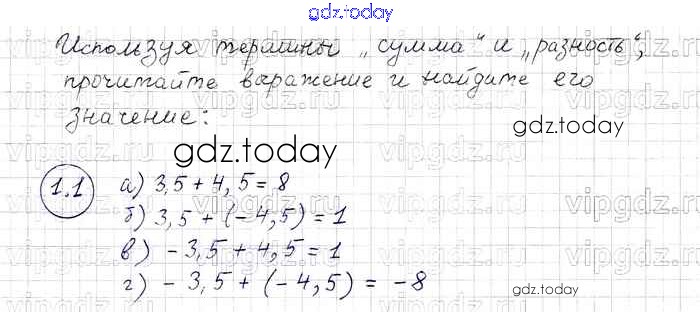 gdz.today
Используя термины „сумма“ и „разность“,
прочитайте выражение и найдите его
значение:
gdz.today
gdz.today
1.1
а) 3,5 + 4,5 = 8
б) 3,5 + (-4,5) = 1
в) - 3,5 + 4,5 = 1
г) - 3,5 + (-4,5) = -8
gdz.today
vipgdz.ru